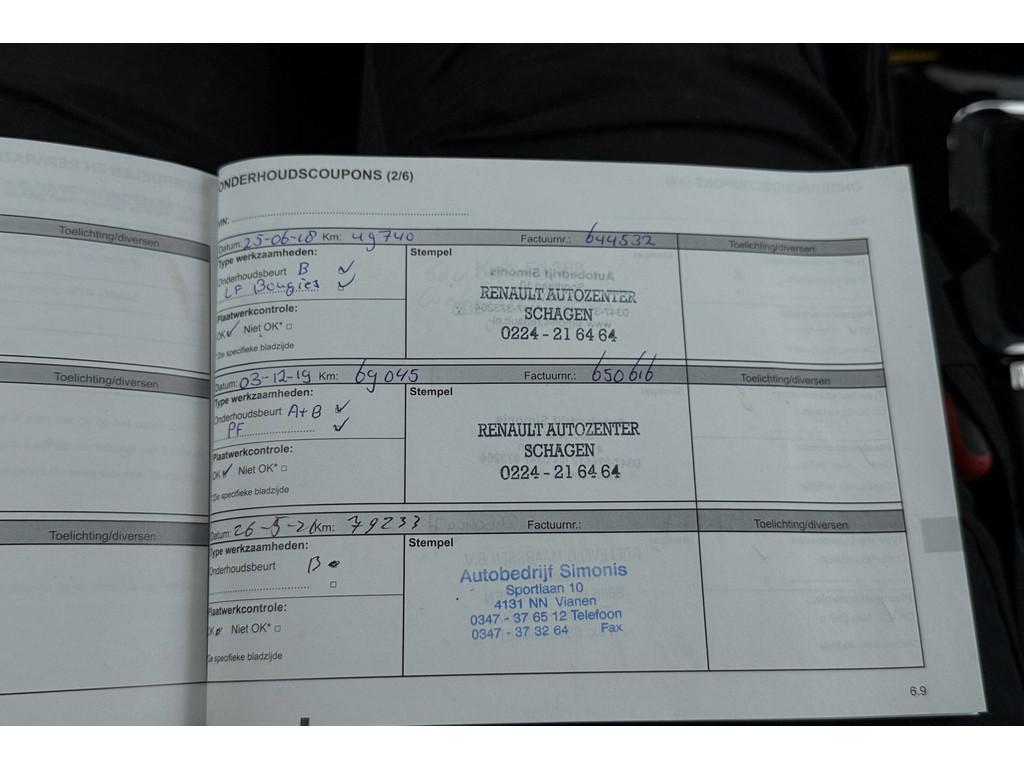 ONDERHOUDSCOUPONS (2/6)
VIN:
Toelichting/diversen
Datum: 25-06-18 Km: 49740 Factuurnr.: 644532 Toelichting/diversen
Type werkzaamheden:
Onderhoudsbeurt B
LF Bougies
Plaatwerkcontrole:
OK Niet OK*
*De specifieke bladzijde
Stempel
RENAULT AUTOZENTER
SCHAGEN
0224 - 21 64 64
Toelichting/diversen
Datum: 03-12-19 Km: 69045 Factuurnr.: 650616 Toelichting/diversen
Type werkzaamheden:
Onderhoudsbeurt A+B
PF
Plaatwerkcontrole:
OK Niet OK*
*De specifieke bladzijde
Stempel
RENAULT AUTOZENTER
SCHAGEN
0224 - 21 64 64
Toelichting/diversen
Datum: 26-5-21 Km: 79233 Factuurnr.: Toelichting/diversen
Type werkzaamheden:
Onderhoudsbeurt B
Plaatwerkcontrole:
OK Niet OK*
*De specifieke bladzijde
Stempel
Autobedrijf Simonis
Sportlaan 10
4131 NN Vianen
0347 - 37 65 12 Telefoon
0347 - 37 32 64 Fax
6.9